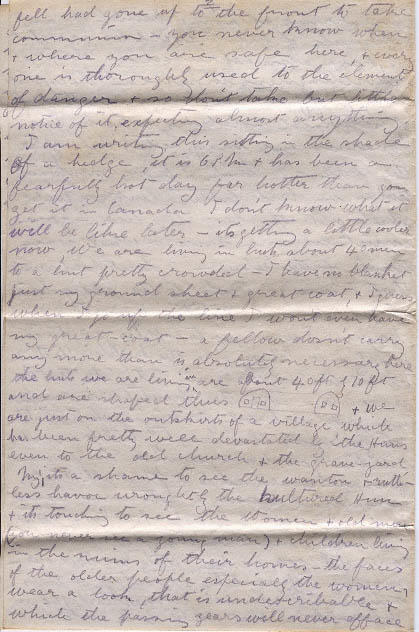 2
fell had gone up to the front to take
communion - you never know when
& where you are safe here & every
one is thoroughly used to the element
of danger & so don't take but little
notice of it, expecting almost anything
I am writing this sitting in the shade
of a hedge, it is 6 P.M & has been a
fearfully hot day far hotter than you
get it in Canada I don't know what it
will be like later - its getting a little cooler
now, We are living in huts about 40 men
to a hut pretty crowded - I have no blanket
just my ground sheet & great coat, & I guess
when I go up the line I wont even have
my great-coat - a fellow doesn't carry
any more than is absolutely necessary here
the huts we are living in are about 40 ft x 10 ft
and are shaped thus & we
are just on the outskirts of a village which
has been pretty well devastated by the Huns
even to the old church & the grave yard
My its a shame to see the wanton & ruth-
less havoc wrought by the Kultured Hun
& its touching to see the women & old men
(you never see a young man) & children living
in the ruins of their homes - the faces
of the older people especially the women,
wear a look that is undescribable &
which the passing years will never efface